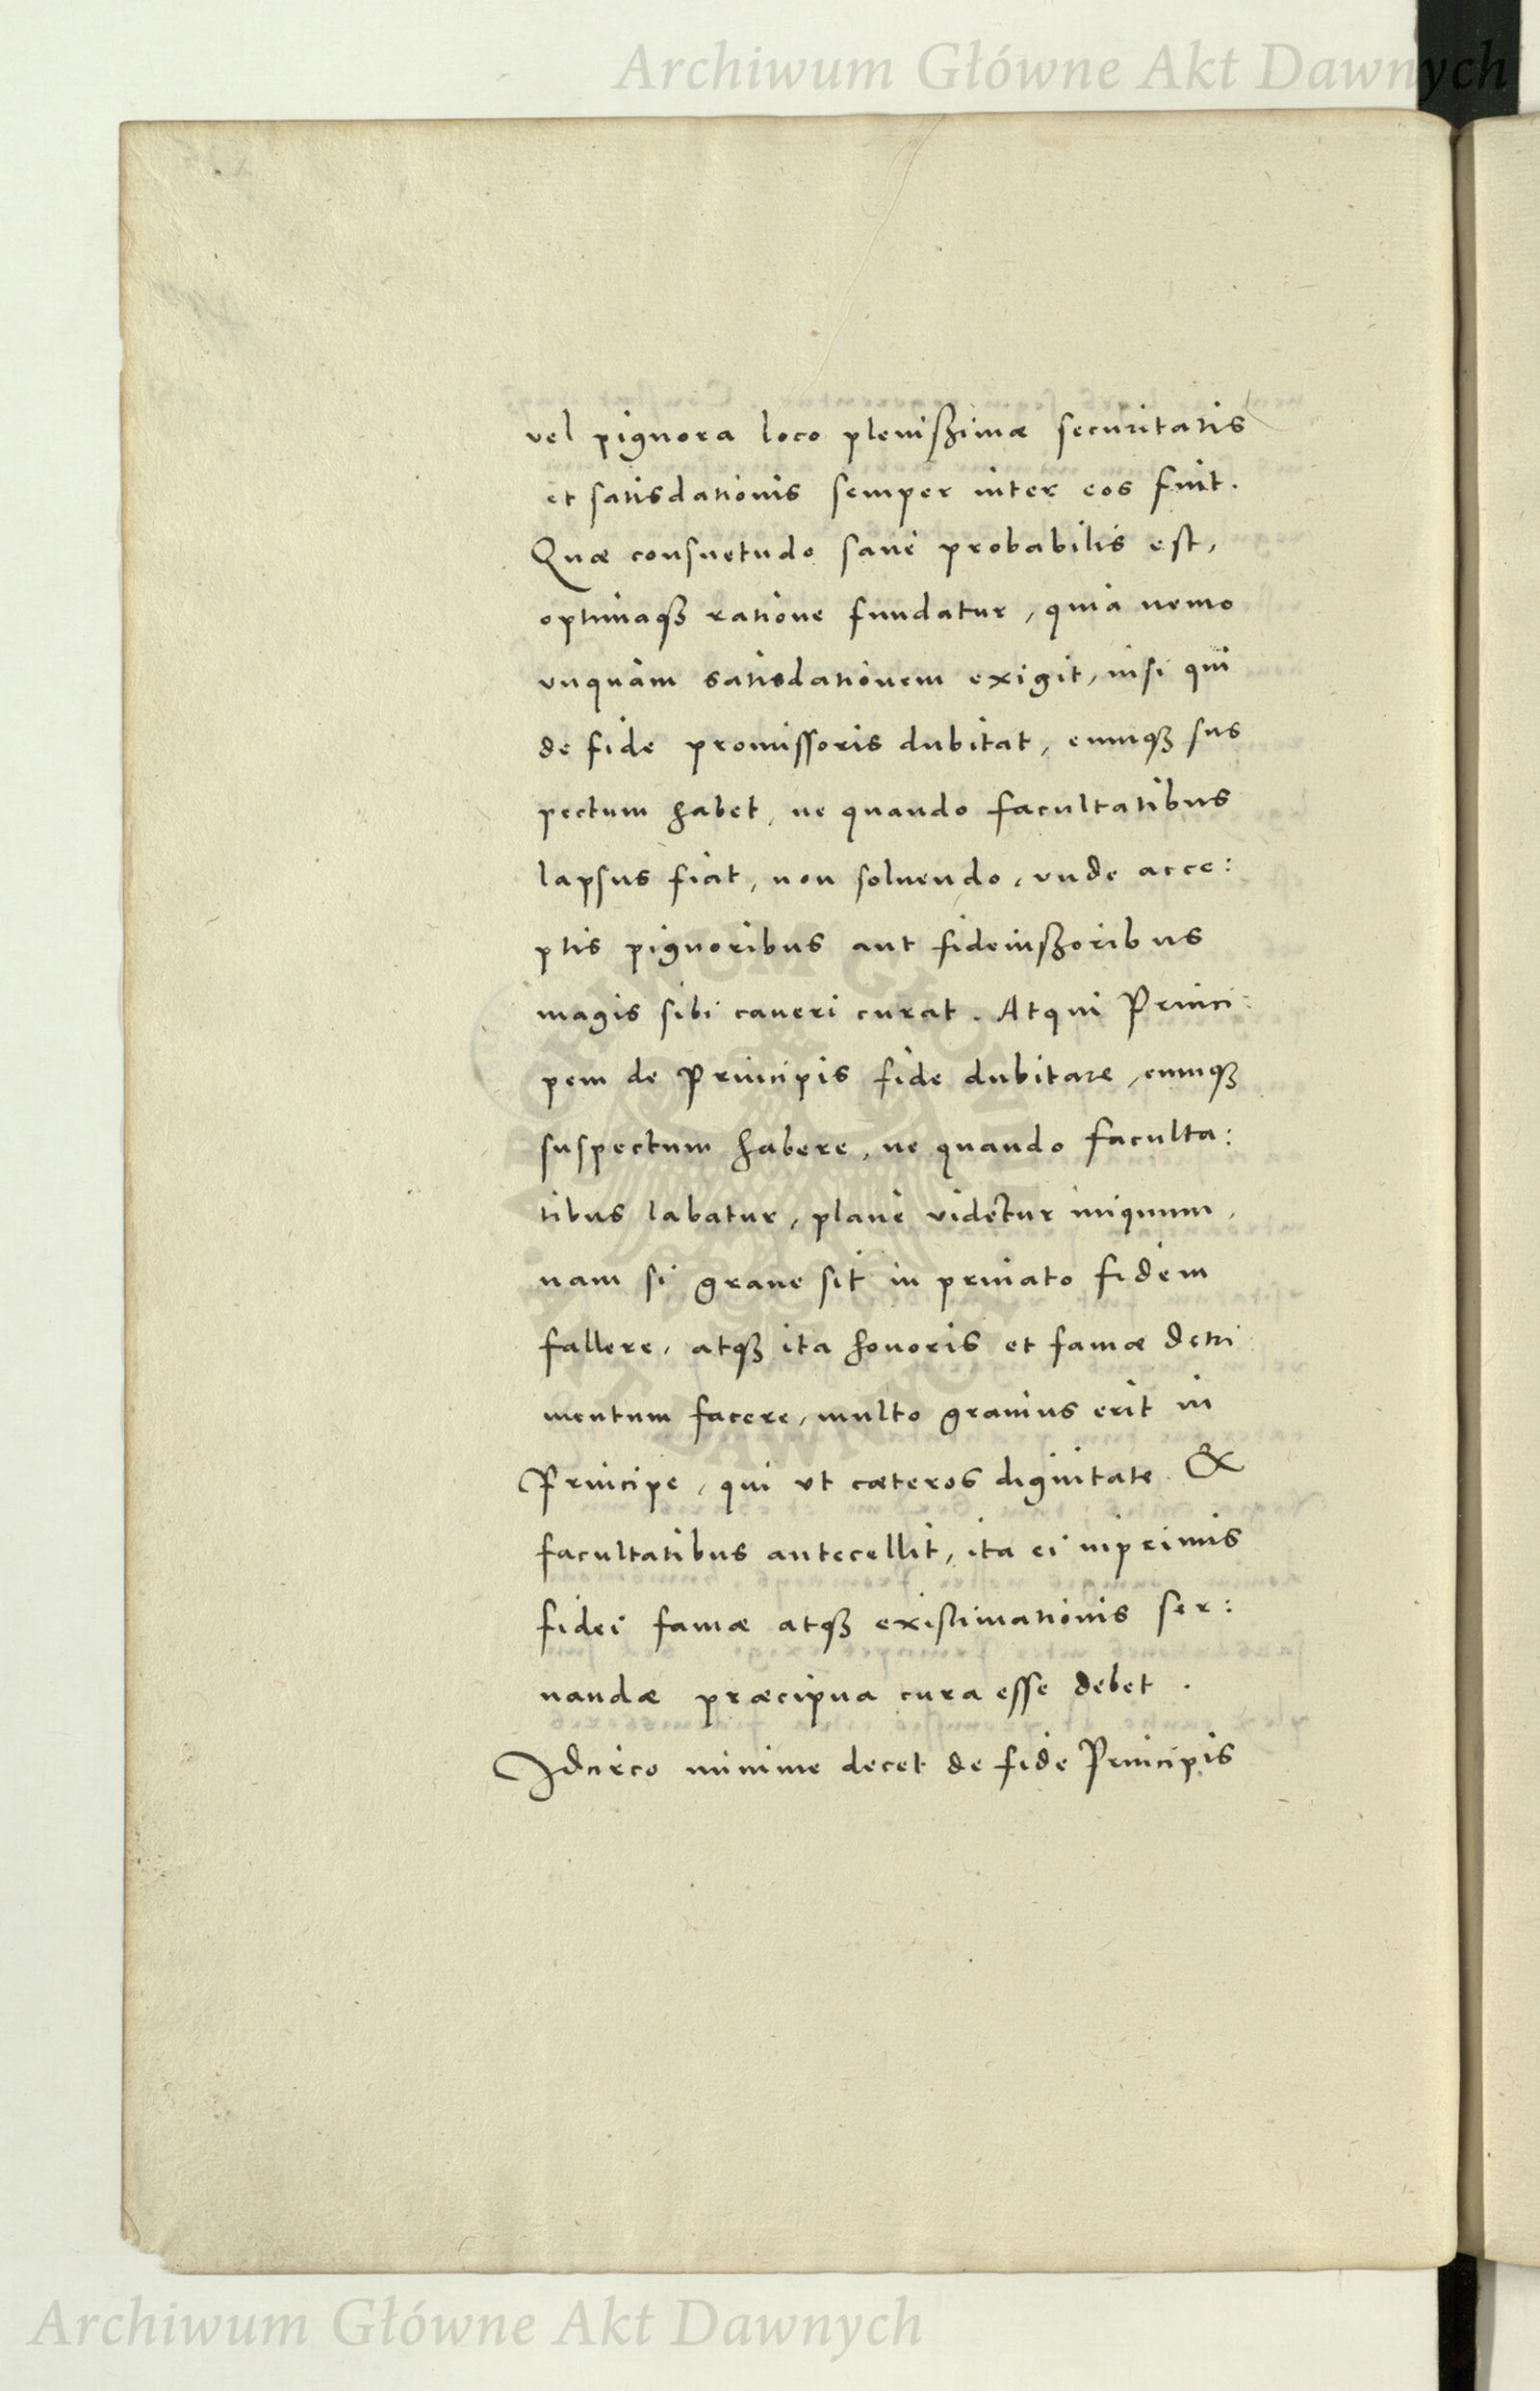 Archiwum Główne Akt Dawnych
vel pignora loco plenißimæ securitatis
et satisdationis semper inter eos fuit.
Quæ consuetudo sane probabilis est,
optimaqꝫ ratione fundatur, quia nemo
vnquam satisdationem exigit, nisi qui
de fide promissoris dubitat, eumqꝫ sus
pectum habet, ne quando facultatibus
lapsus fiat, non soluendo, vnde acce:
ptis pignoribus aut fideiußoribus
magis sibi caueri curat. Atqui Princi:
pem de Principis fide dubitare, eumqꝫ
suspectum habere, ne quando faculta:
tibus labatur, plane videtur iniquum,
nam si graue sit in priuato fidem
fallere, atqꝫ ita honoris et famæ detri
mentum facere, multo grauius erit in
Principe, qui vt cæteros dignitate &
facultatibus antecellit, ita ei inprimis
fidei famæ atqꝫ existimationis ser:
uandæ præcipua cura esse debet.
Idcirco minime decet de fide Principis
Archiwum Główne Akt Dawnych